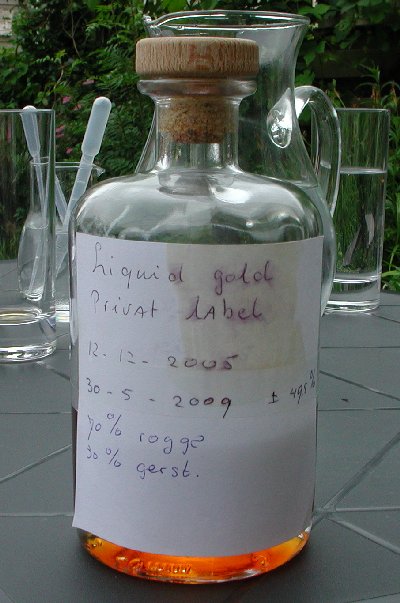 Liquid gold
Privat label
12-12-2005
30-5-2009 ± 49,5%
70% rogge
30% gerst.